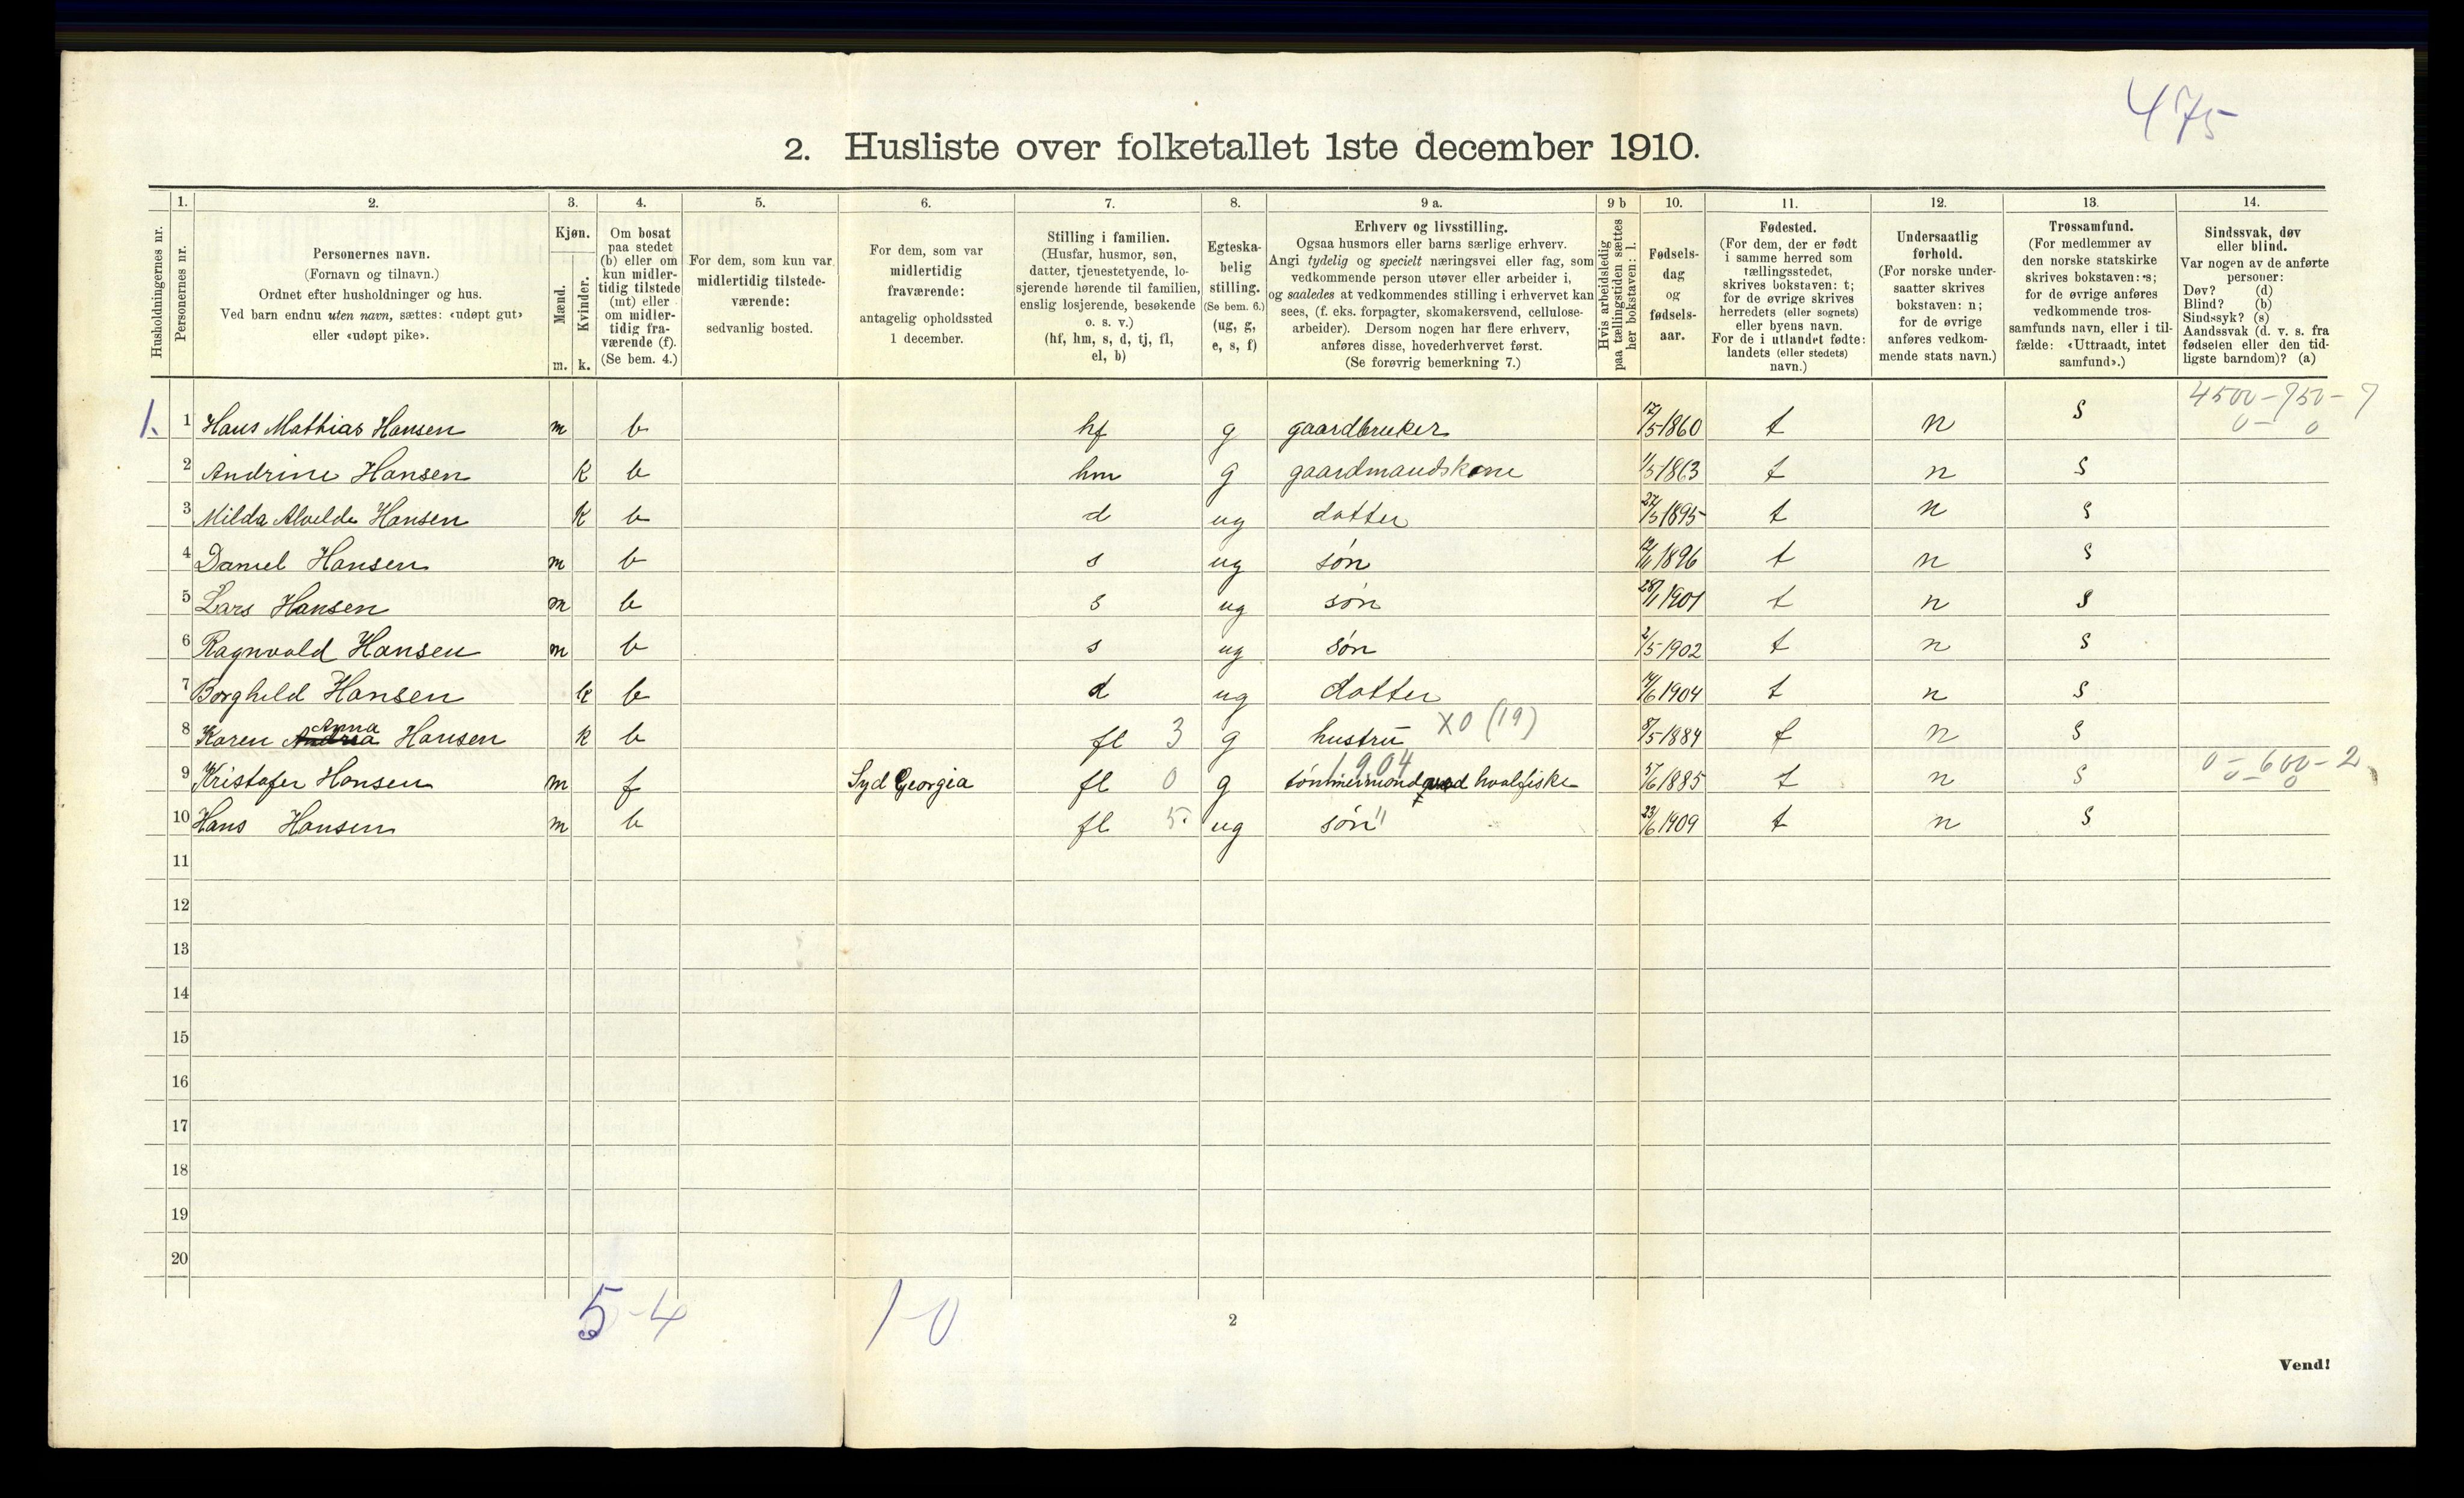 475
2. Husliste over folketallet 1ste december 1910.
Husholdningernes nr.
1.
Personernes nr.
2.
Personernes navn.
(Fornavn og tilnavn.)
Ordnet efter husholdninger og hus.
Ved barn endnu uten navn, sættes: «udøpt gut»
eller «udøpt pike».
3.
Kjøn.
Mænd. Kvinder.
m. k.
4.
Om bosat
paa stedet
(b) eller om
kun midler-
tidig tilstede
(mt) eller
om midler-
tidig fra-
værende (f).
(Se bem. 4.)
5.
For dem, som kun var
midlertidig tilstede-
værende:
sedvanlig bosted.
6.
For dem, som var
midlertidig
fraværende:
antagelig opholdssted
1 december.
7.
Stilling i familien.
(Husfar, husmor, søn,
datter, tjenestetyende, lo-
sjerende hørende til familien,
enslig losjerende, besøkende
o. s. v.)
(hf, hm, s, d, tj, fl,
el, b)
8.
Egteska-
belig
stilling.
(Se bem. 6.)
(ug, g,
e, s, f)
9 a.
Erhverv og livsstilling.
Ogsaa husmors eller barns særlige erhverv.
Angi tydelig og specielt næringsvei eller fag, som
vedkommende person utøver eller arbeider i,
og saaledes at vedkommendes stilling i erhvervet kan
sees, (f. eks. forpagter, skomakersvend, cellulose-
arbeider). Dersom nogen har flere erhverv,
anføres disse, hovederhvervet først.
(Se forøvrig bemerkning 7.)
9 b
Hvis arbeidsledig
paa tællingstiden sættes
her bokstaven: l.
10.
Fødsels-
dag
og
fødsels-
aar.
11.
Fødested.
(For dem, der er født
i samme herred som
tællingsstedet,
skrives bokstaven: t;
for de øvrige skrives
herredets (eller sognets)
eller byens navn.
For de i utlandet fødte:
landets (eller stedets)
navn.)
12.
Undersaatlig
forhold.
(For norske under-
saatter skrives
bokstaven: n;
for de øvrige
anføres vedkom-
mende stats navn.)
13.
Trossamfund.
(For medlemmer av
den norske statskirke
skrives bokstaven: s;
for de øvrige anføres
vedkommende tros-
samfunds navn, eller i til-
fælde: «Uttraadt, intet
samfund».)
14.
Sindssvak, døv
eller blind.
Var nogen av de anførte
personer:
Døv? (d)
Blind? (b)
Sindssyk? (s)
Aandssvak (d. v. s. fra
fødselen eller den tid-
ligste barndom)? (a)
4500-750-7
1. 1 Hans Mathias Hansen m b hf g gaardbruker 17/5 1860 t n s 0- 0
2 Andrine Hansen k b hm g gaardmandskone 1/5 1863 t n s
3 Milda Alvilde Hansen k b d ug datter 27/5 1895 t n s
4 Daniel Hansen m b s ug søn 1896 t n s
5 Lars Hansen m b s ug søn 28/1 1901 t n s
6 Ragnvald Hansen m b s ug søn 2/5 1902 t n s
7 Borghild Hansen k b d ug datter 1904 t n s
8 Karen Andrea Anna Hansen k b fl 3 g hustru X0 (19) 8/5 1884 t n s
1904
9 Kristofer Hansen m f Syd Georgia fl 0 g tømmermand hvalfiske 5/6 1885 t n s 0-600-2
0
10 Hans Hansen m b fl 5. ug søn " 23/6 1909 t n s
11
12
13
14
15
16
17
18
19
20
5-4 1-0
2
Vend!